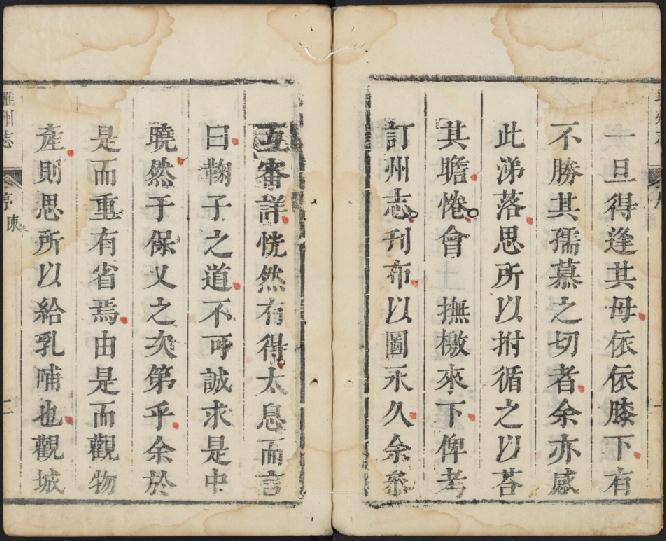 一旦得逢其母依依膝下有
不勝其孺慕之切者余亦感
此涕落思所以拊循之以荅
其瞻惓會 撫檄來下俾考
訂州志刊布以圖永久余叅
互審詳恍然有得太息而言
曰鞠子之道不可誠求是中
曉然于保乂之次第乎余於
是而重有省焉由是而觀物
產則思所以給乳哺也觀城
州志 序 陳 二